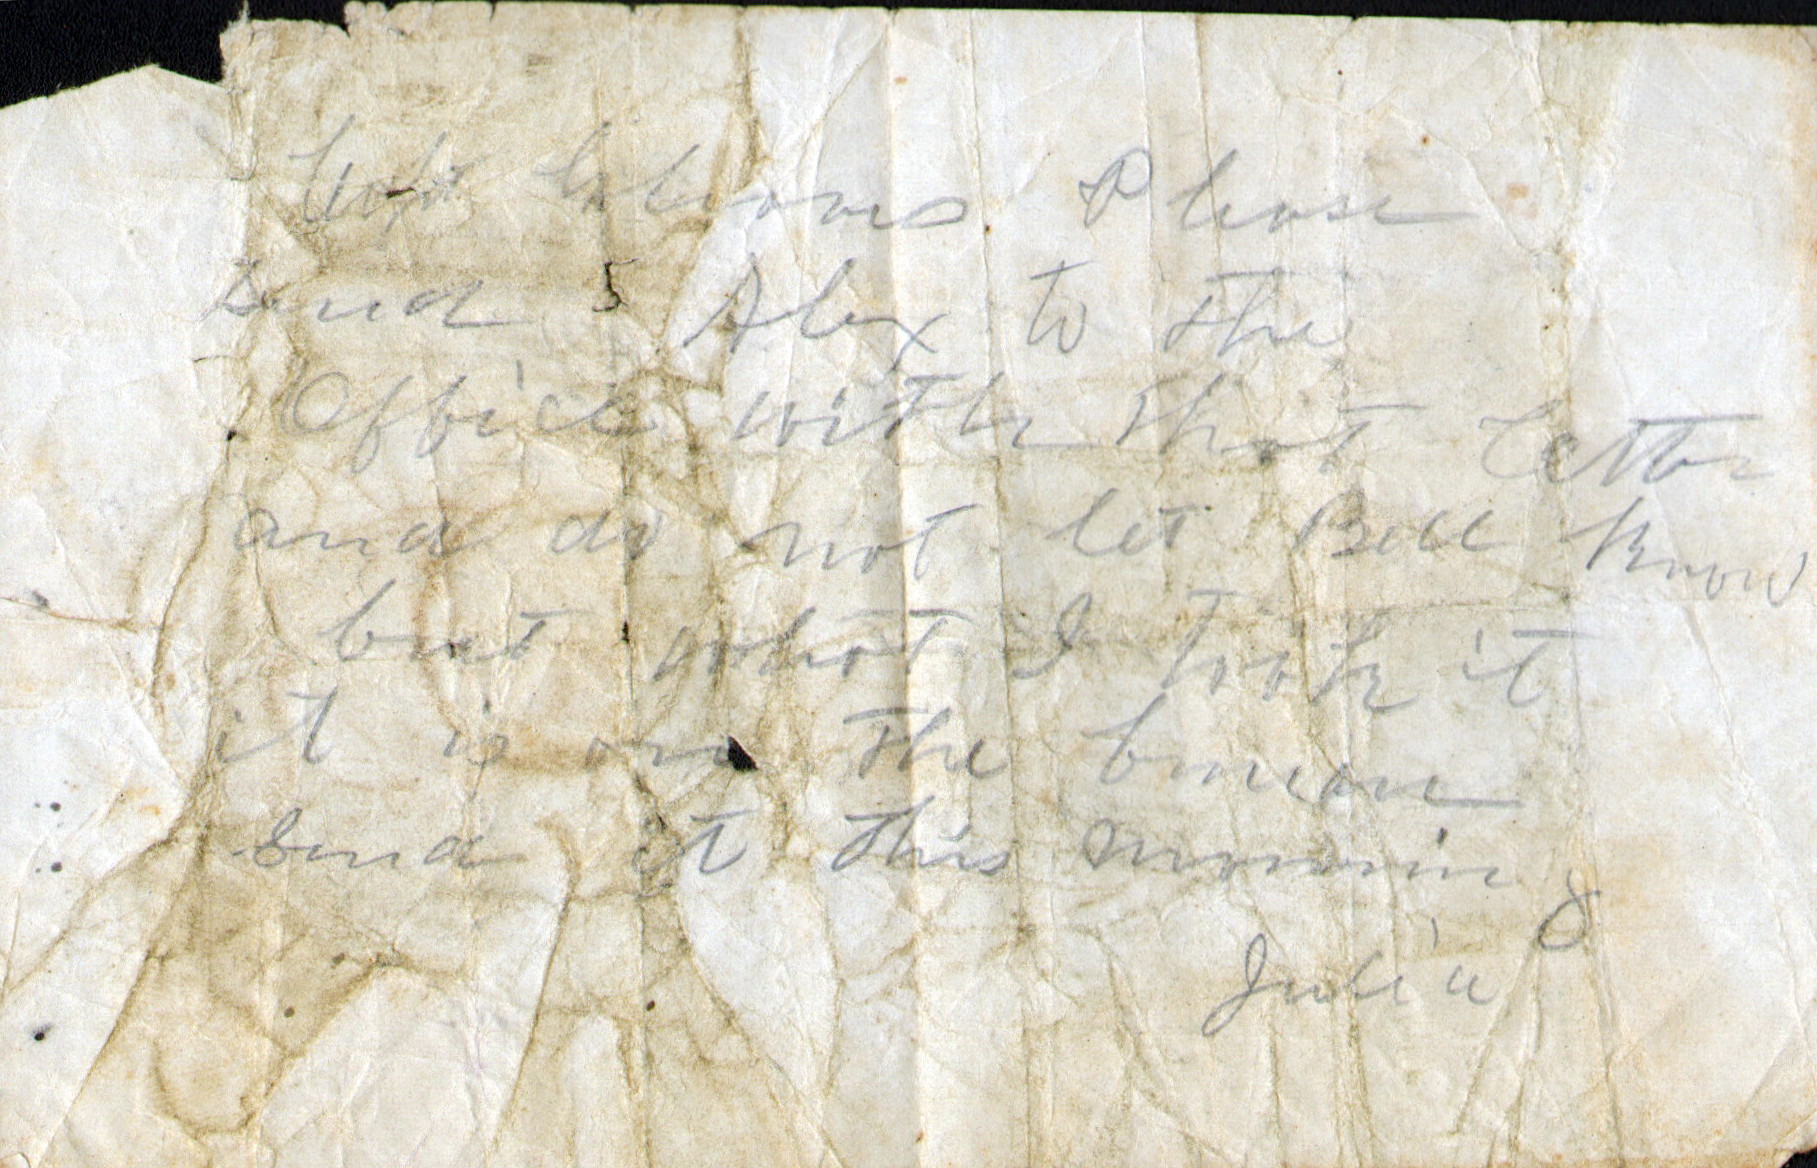 Please
send Alex to the
Office with that letter
and do not let Bell know
but what I took it
it is on the bureau
send it this mornin
Julia